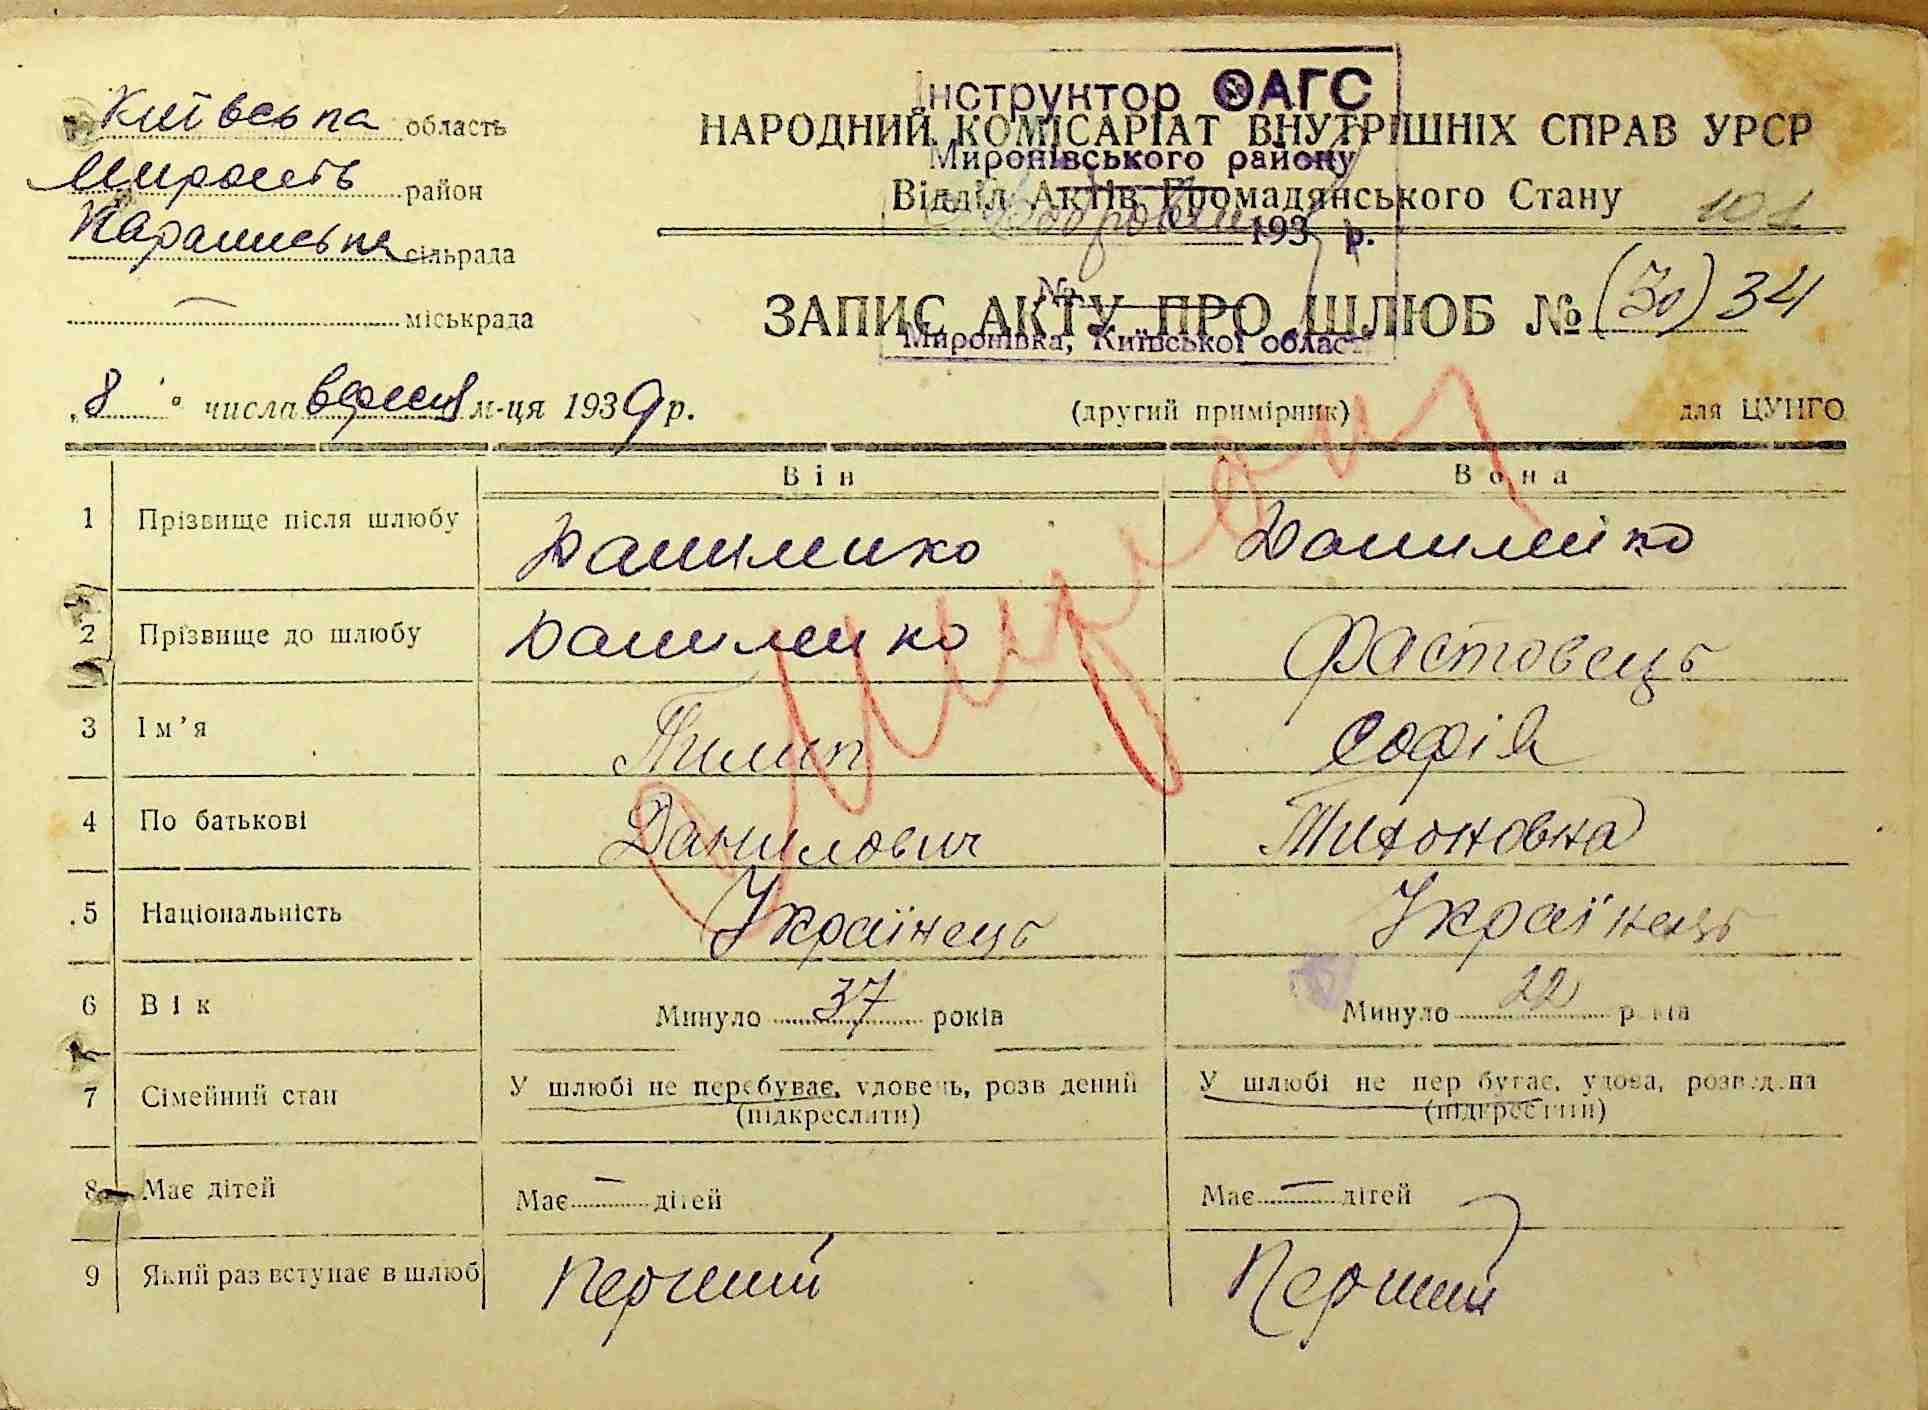 Київська область
Миронів район
Караписька сільрада
— міськрада
Інструктор ОАГС
НАРОДНИЙ КОМІСАРІАТ ВНУТРІШНІХ СПРАВ УРСР
Миронівського району
Відділ Актів Громадянського Стану
101
193 р.
№
ЗАПИС АКТУ ПРО ШЛЮБ № (30) 34
Миронівка, Київської област
„8" числа вересня м-ця 1939 р.
(другий примірник)
для ЦУНГО
Він
Вона
1 Прізвище після шлюбу Даниленко Даниленко
2 Прізвище до шлюбу Даниленко Фастовець
3 Ім'я Пилип Софія
4 По батькові Данилович Тихоновна
5 Національність Українець Українець
6 Вік Минуло 37 років Минуло 22 років
7 Сімейний стан У шлюбі не перебуває, удовець, розведений У шлюбі не перебуває, удова, розведена
(підкреслити) (підкреслити)
8 Має дітей Має — дітей Має — дітей
9 Який раз вступає в шлюб Перший Перший